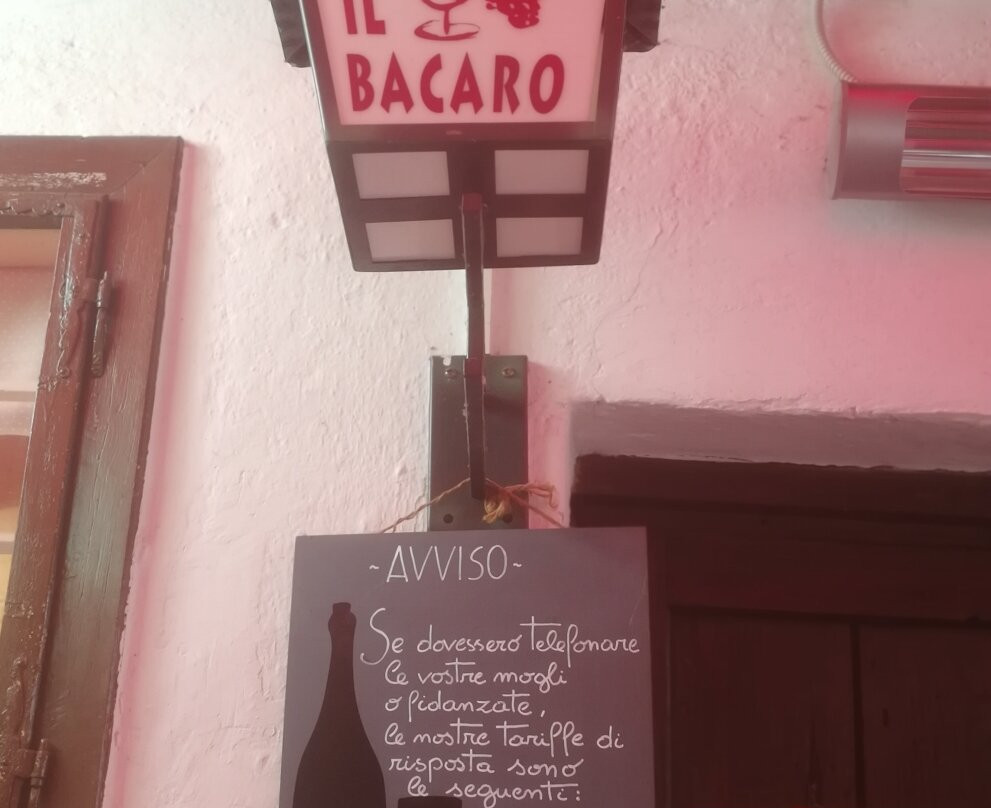 IL
BACARO
~AVVISO~
Se dovessero telefonare
le vostre mogli
o fidanzate,
le nostre tariffe di
risposta sono
le seguenti: